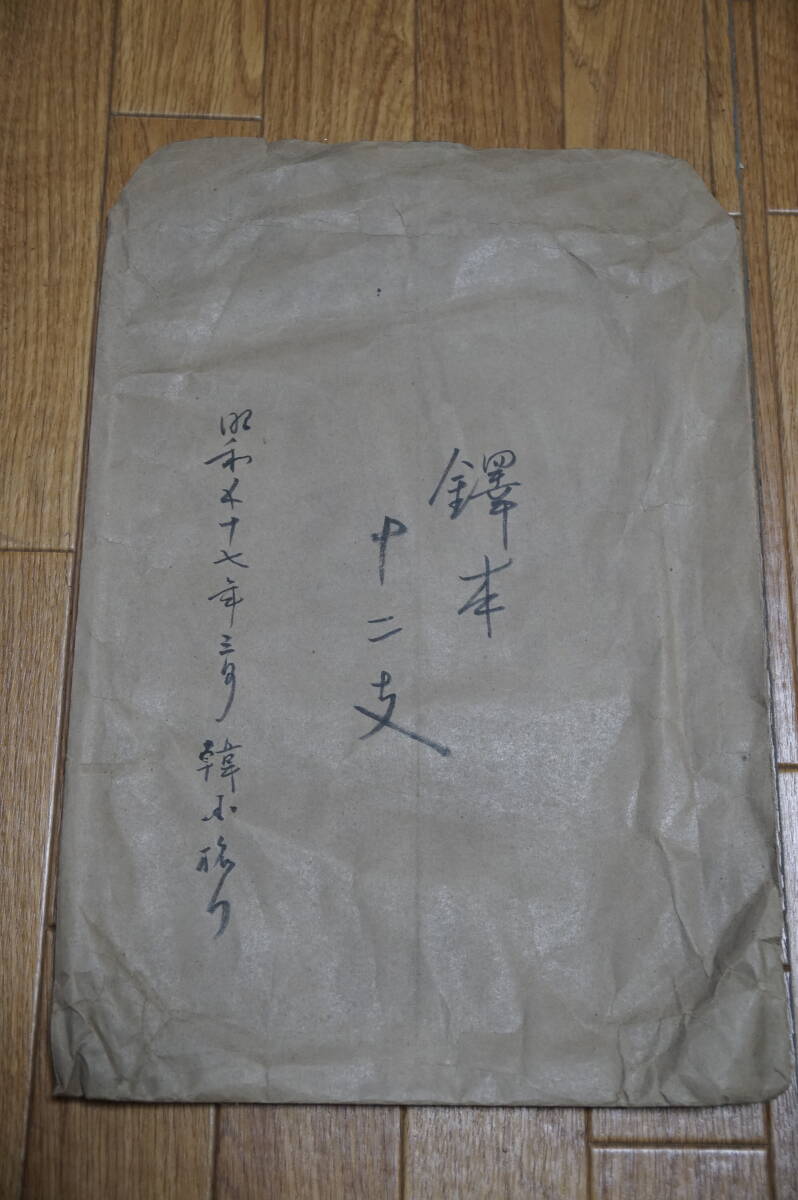 鐸本
十二支
昭和五十七年三月 韓国旅行